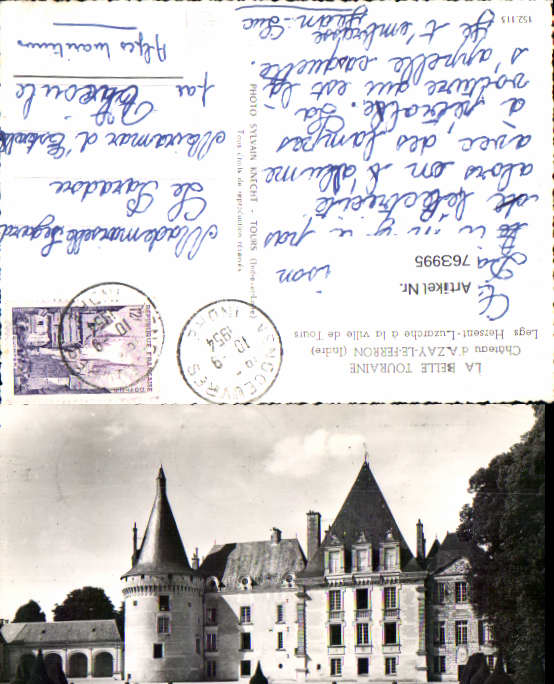 LA BELLE TOURAINE
Château d'AZAY-LE-FERRON (Indre)
Legs Hersent-Luzarche à la ville de Tours
Artikel Nr.
763995
ici il n'y a pas
de l'électricité
alors on s'allume
avec des lampes
à pétrole. La
voiture qui est là
s'appelle casquette.
Je t'embrasse
Jean-Luc
152.115
PHOTO SYLVAIN KNECHT - TOURS (Indre-et-Loire)
Tous droits de reproduction réservés
VENDŒUVRES
10 - 9
1954
INDRE
REPUBLIQUE FRANÇAISE
POSTES
12F
Mademoiselle Legard
Le Paradou
Miramar d'Estérel
par Théoule
Alpes Maritimes